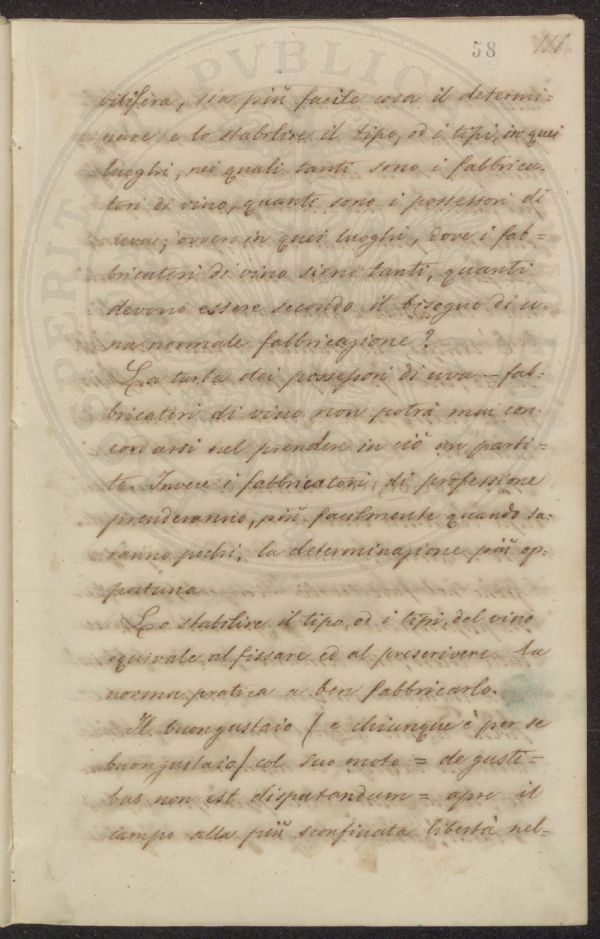 58 181
vitifera, sia più facile cosa il determi=
nare e lo stabilire il tipo, od i tipi, in quei
luoghi, nei quali tanti sono i fabbrica-
tori di vino, quanti sono i possessori di
uva; ovvero in quei luoghi, dove i fab=
bricatori di vino sieno tanti, quanti
devono essere secondo il bisogno di u-
na normale fabbricazione?
La turba dei possessori di uva - fab-
bricatori di vino non potrà mai con-
cordarsi nel prendere in ciò un parti-
to. Invece i fabbricatori di professione
prenderanno, più facilmente quando sa-
ranno pochi, la determinazione più op-
portuna.
Lo stabilire il tipo, od i tipi, del vino
equivale al fissare ed al prescrivere la
norma pratica a ben fabbricarlo.
Il buongustaio / e chiunque è per se
buongustaio / col suo moto = de gusti=
bus non est disputandum = apre il
campo alla più sconfinata libertà nel=